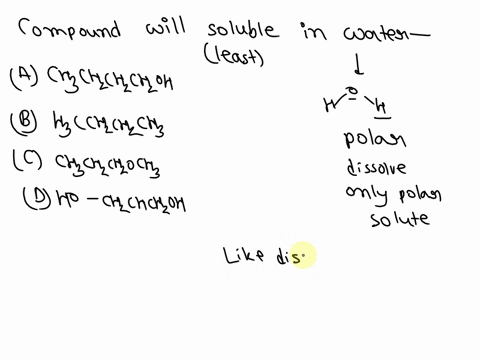 Compound will soluble in water—
(least)
(A) CH3CH2CH2CH2OH
(B) H3CCH2CH2CH3
(C) CH3CH2CH2OCH3
(D) HO-CH2CHCH2OH
H O H
polar
dissolve
only polar
solute
Like dis.